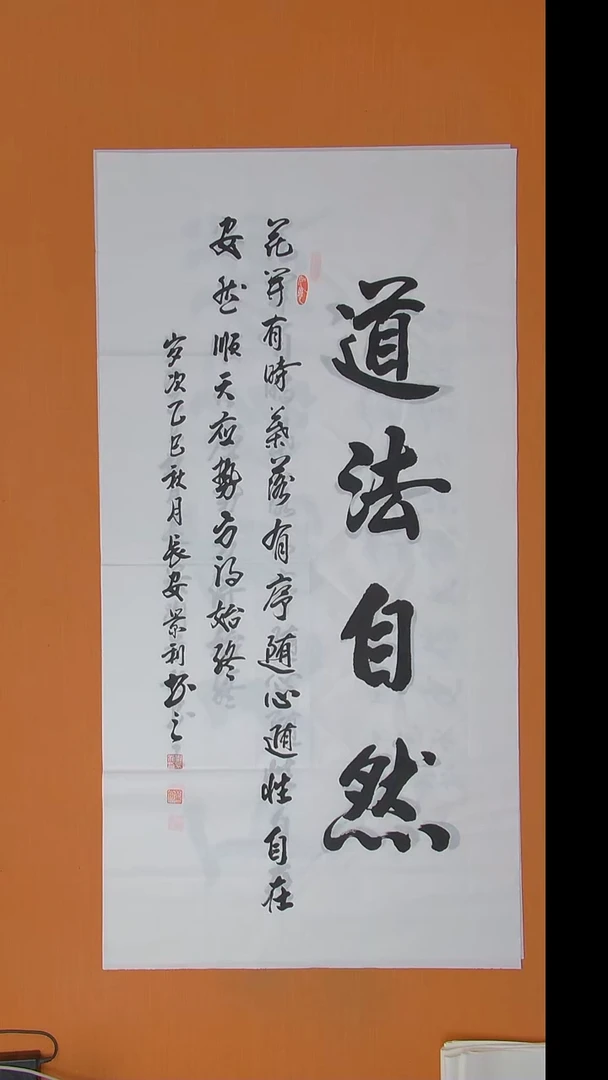 道法自然
花开有时叶落有序随心随性自在
安然顺天应势方得始终
岁次乙巳秋月长安景利书之